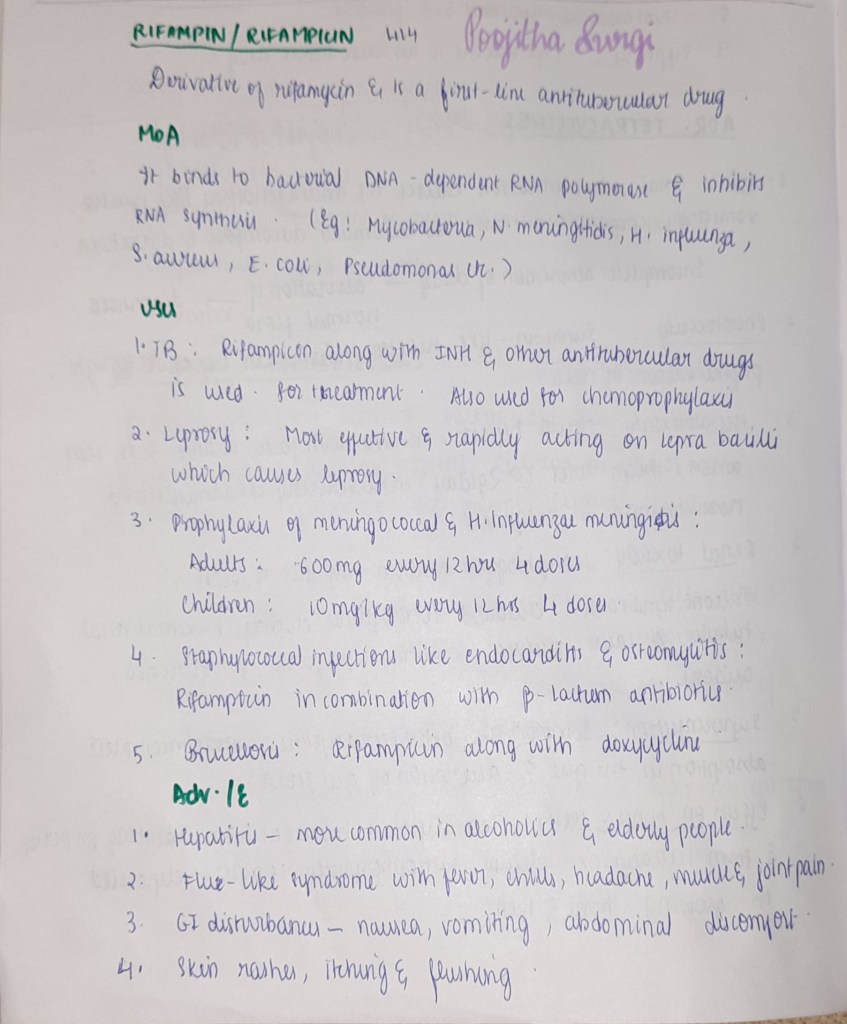 RIFAMPIN / RIFAMPICIN 414 Poojitha Surgi
Derivative of rifamycin & is a first-line antitubercular drug.
MOA
It binds to bacterial DNA - dependent RNA polymerase & inhibits
RNA synthesis. (Eg: Mycobacteria, N. meningitidis, H. influenza,
S. aureus, E. coli, Pseudomonas etc.)
Uses
1. TB: Rifampicin along with INH & other antitubercular drugs
is used. for treatment. Also used for chemoprophylaxis
2. Leprosy: Most effective & rapidly acting on lepra bacilli
which causes leprosy.
3. Prophylaxis of meningococcal & H. Influenzae meningitis:
Adults: 600mg every 12hrs 4 doses
Children: 10mg/kg every 12hrs 4 doses
4. Staphylococcal infections like endocarditis & osteomylitis:
Rifampicin in combination with β-lactum antibiotics.
5. Brucellosis: Rifampicin along with doxycycline
Adv. /E
1. Hepatitis – more common in alcoholics & elderly people.
2. Flue-like syndrome with fever, chills, headache, muscle & joint pain.
3. GI disturbances – nausea, vomiting, abdominal discomfort.
4. Skin rashes, itching & flushing.